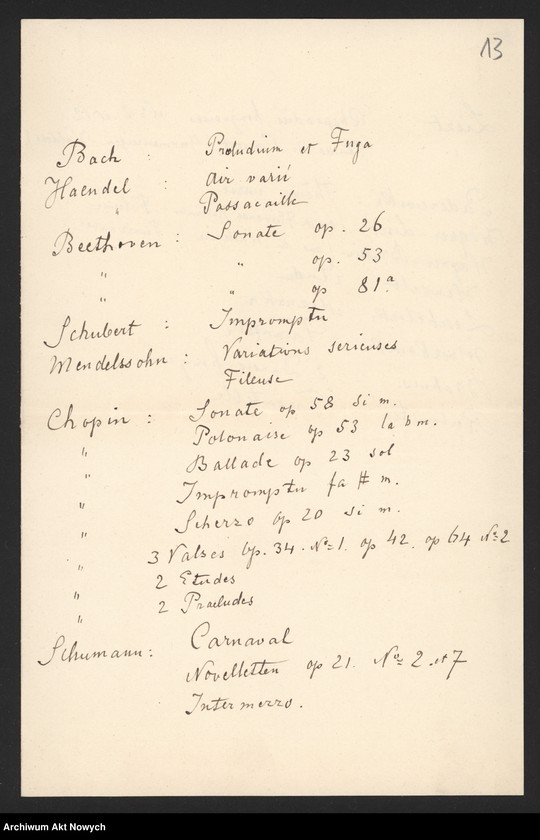 13
Bach : Preludium et Fuga
Haendel : Air varié
" Passacaille
Beethoven : Sonate op. 26
" " op. 53
" " op 81a.
Schubert : Impromptu
Mendelssohn : Variations serieuses
Fileuse
Chopin : Sonate op 58 si m.
" Polonaise op 53 la b m.
" Ballade op 23 sol
" Impromptu fa # m.
" Scherzo op 20 si m.
" 3 Valses Op. 34. No 1. op 42. op 64 No 2
" 2 Etudes
" 2 Praeludes
Schumann : Carnaval
Novelletten op 21. No 2 et 7
Intermezzo.
Archiwum Akt Nowych